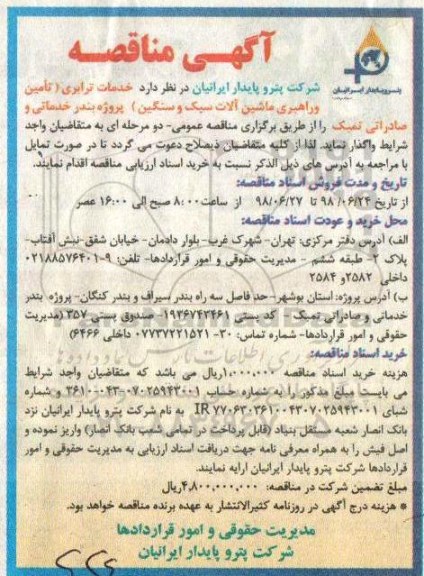 آگهی مناقصه
پترو پایدار ایرانیان
شرکت پترو پایدار ایرانیان در نظر دارد خدمات ترابری (تأمین
وراهبری ماشین آلات سبک و سنگین) پروژه بندر خدماتی و
صادراتی تمبک را از طریق برگزاری مناقصه عمومی- دو مرحله ای به متقاضیان واجد
شرایط واگذار نماید. لذا از کلیه متقاضیان ذیصلاح دعوت می گردد تا در صورت تمایل
با مراجعه به آدرس های ذیل الذکر نسبت به خرید اسناد ارزیابی مناقصه اقدام نمایند.
تاریخ و مدت فروش اسناد مناقصه:
از تاریخ ۹۸/۰۶/۲۴ تا ۹۸/۰۶/۲۷ از ساعت ۸:۰۰ صبح الی ۱۶:۰۰ عصر
محل خرید و عودت اسناد مناقصه:
الف) آدرس دفتر مرکزی: تهران- شهرک غرب- بلوار دادمان- خیابان شفق-نبش آفتاب-
پلاک ۲- طبقه ششم - مدیریت حقوقی و امور قراردادها- تلفن: ۹-۰۲۱۸۸۵۷۶۴۰۱
داخلی ۲۵۸۲و ۲۵۸۴
ب) آدرس پروژه: استان بوشهر- حد فاصل سه راه بندر سیراف و بندر کنگان- پروژه بندر
خدماتی و صادراتی تمبک - کد پستی ۱۹۳۶۷۴۳۴۶۱- صندوق پستی ۳۵۷ (مدیریت
حقوقی و امور قراردادها- شماره تماس: ۳۰- ۰۷۷۳۷۲۲۱۵۲۱ داخلی ۶۴۶۶)
خرید اسناد مناقصه:
هزینه خرید اسناد مناقصه ۱,۰۰۰,۰۰۰ریال می باشد که متقاضیان واجد شرایط
می بایست مبلغ مذکور را به شماره حساب ۰۷۰۲۵۹۴۳۰۰۱-۰۴۳-۳۶۱۰ و شماره
شبای IR ۷۷۰۶۳۰۳۶۱۰۰۴۳۰۷۰۲۵۹۴۳۰۰۱ به نام شرکت پترو پایدار ایرانیان نزد
بانک انصار شعبه مستقل بنیاد (قابل پرداخت در تمامی شعب بانک انصار) واریز نموده و
اصل فیش را به همراه معرفی نامه جهت دریافت اسناد ارزیابی به مدیریت حقوقی و امور
قراردادها شرکت پترو پایدار ایرانیان ارایه نمایند.
مبلغ تضمین شرکت در مناقصه: ۴,۸۰۰,۰۰۰,۰۰۰ریال
* هزینه درج آگهی در روزنامه کثیرالانتشار به عهده برنده مناقصه خواهد بود.
مدیریت حقوقی و امور قراردادها
شرکت پترو پایدار ایرانیان